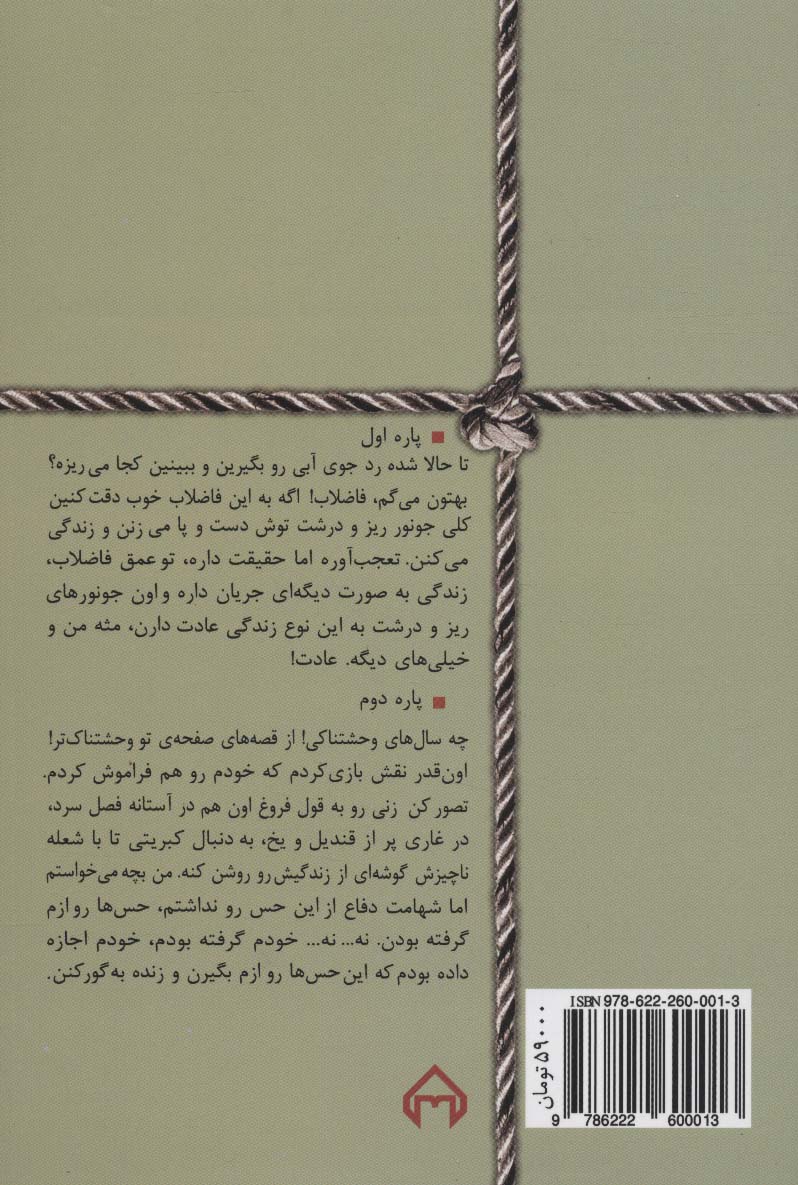 پاره اول
تا حالا شده رد جوی آبی رو بگیرین و ببینین کجا می‌ریزه؟
بهتون می‌گم، فاضلاب! اگه به این فاضلاب خوب دقت کنین
کلی جونور ریز و درشت توش دست و پا می‌زنن و زندگی
می‌کنن. تعجب‌آوره اما حقیقت داره، تو عمق فاضلاب،
زندگی به صورت دیگه‌ای جریان داره و اون جونورهای
ریز و درشت به این نوع زندگی عادت دارن، مثه من و
خیلی‌های دیگه. عادت!
پاره دوم
چه سال‌های وحشتناکی! از قصه‌های صفحه‌ی تو وحشتناک‌تر!
اون‌قدر نقش بازی کردم که خودم رو هم فراموش کردم.
تصور کن زنی رو به قول فروغ اون هم در آستانه فصل سرد،
در غاری پر از قندیل و یخ، به دنبال کبریتی تا با شعله
ناچیزش گوشه‌ای از زندگیش رو روشن کنه. من بچه می‌خواستم
اما شهامت دفاع از این حس رو نداشتم، حس‌ها رو ازم
گرفته بودن. نه... نه... خودم گرفته بودم، خودم اجازه
داده بودم که این حس‌ها رو ازم بگیرن و زنده به گور کنن.
ISBN 978-622-260-001-3
۵۹۰۰۰ تومان
9 786222 600013